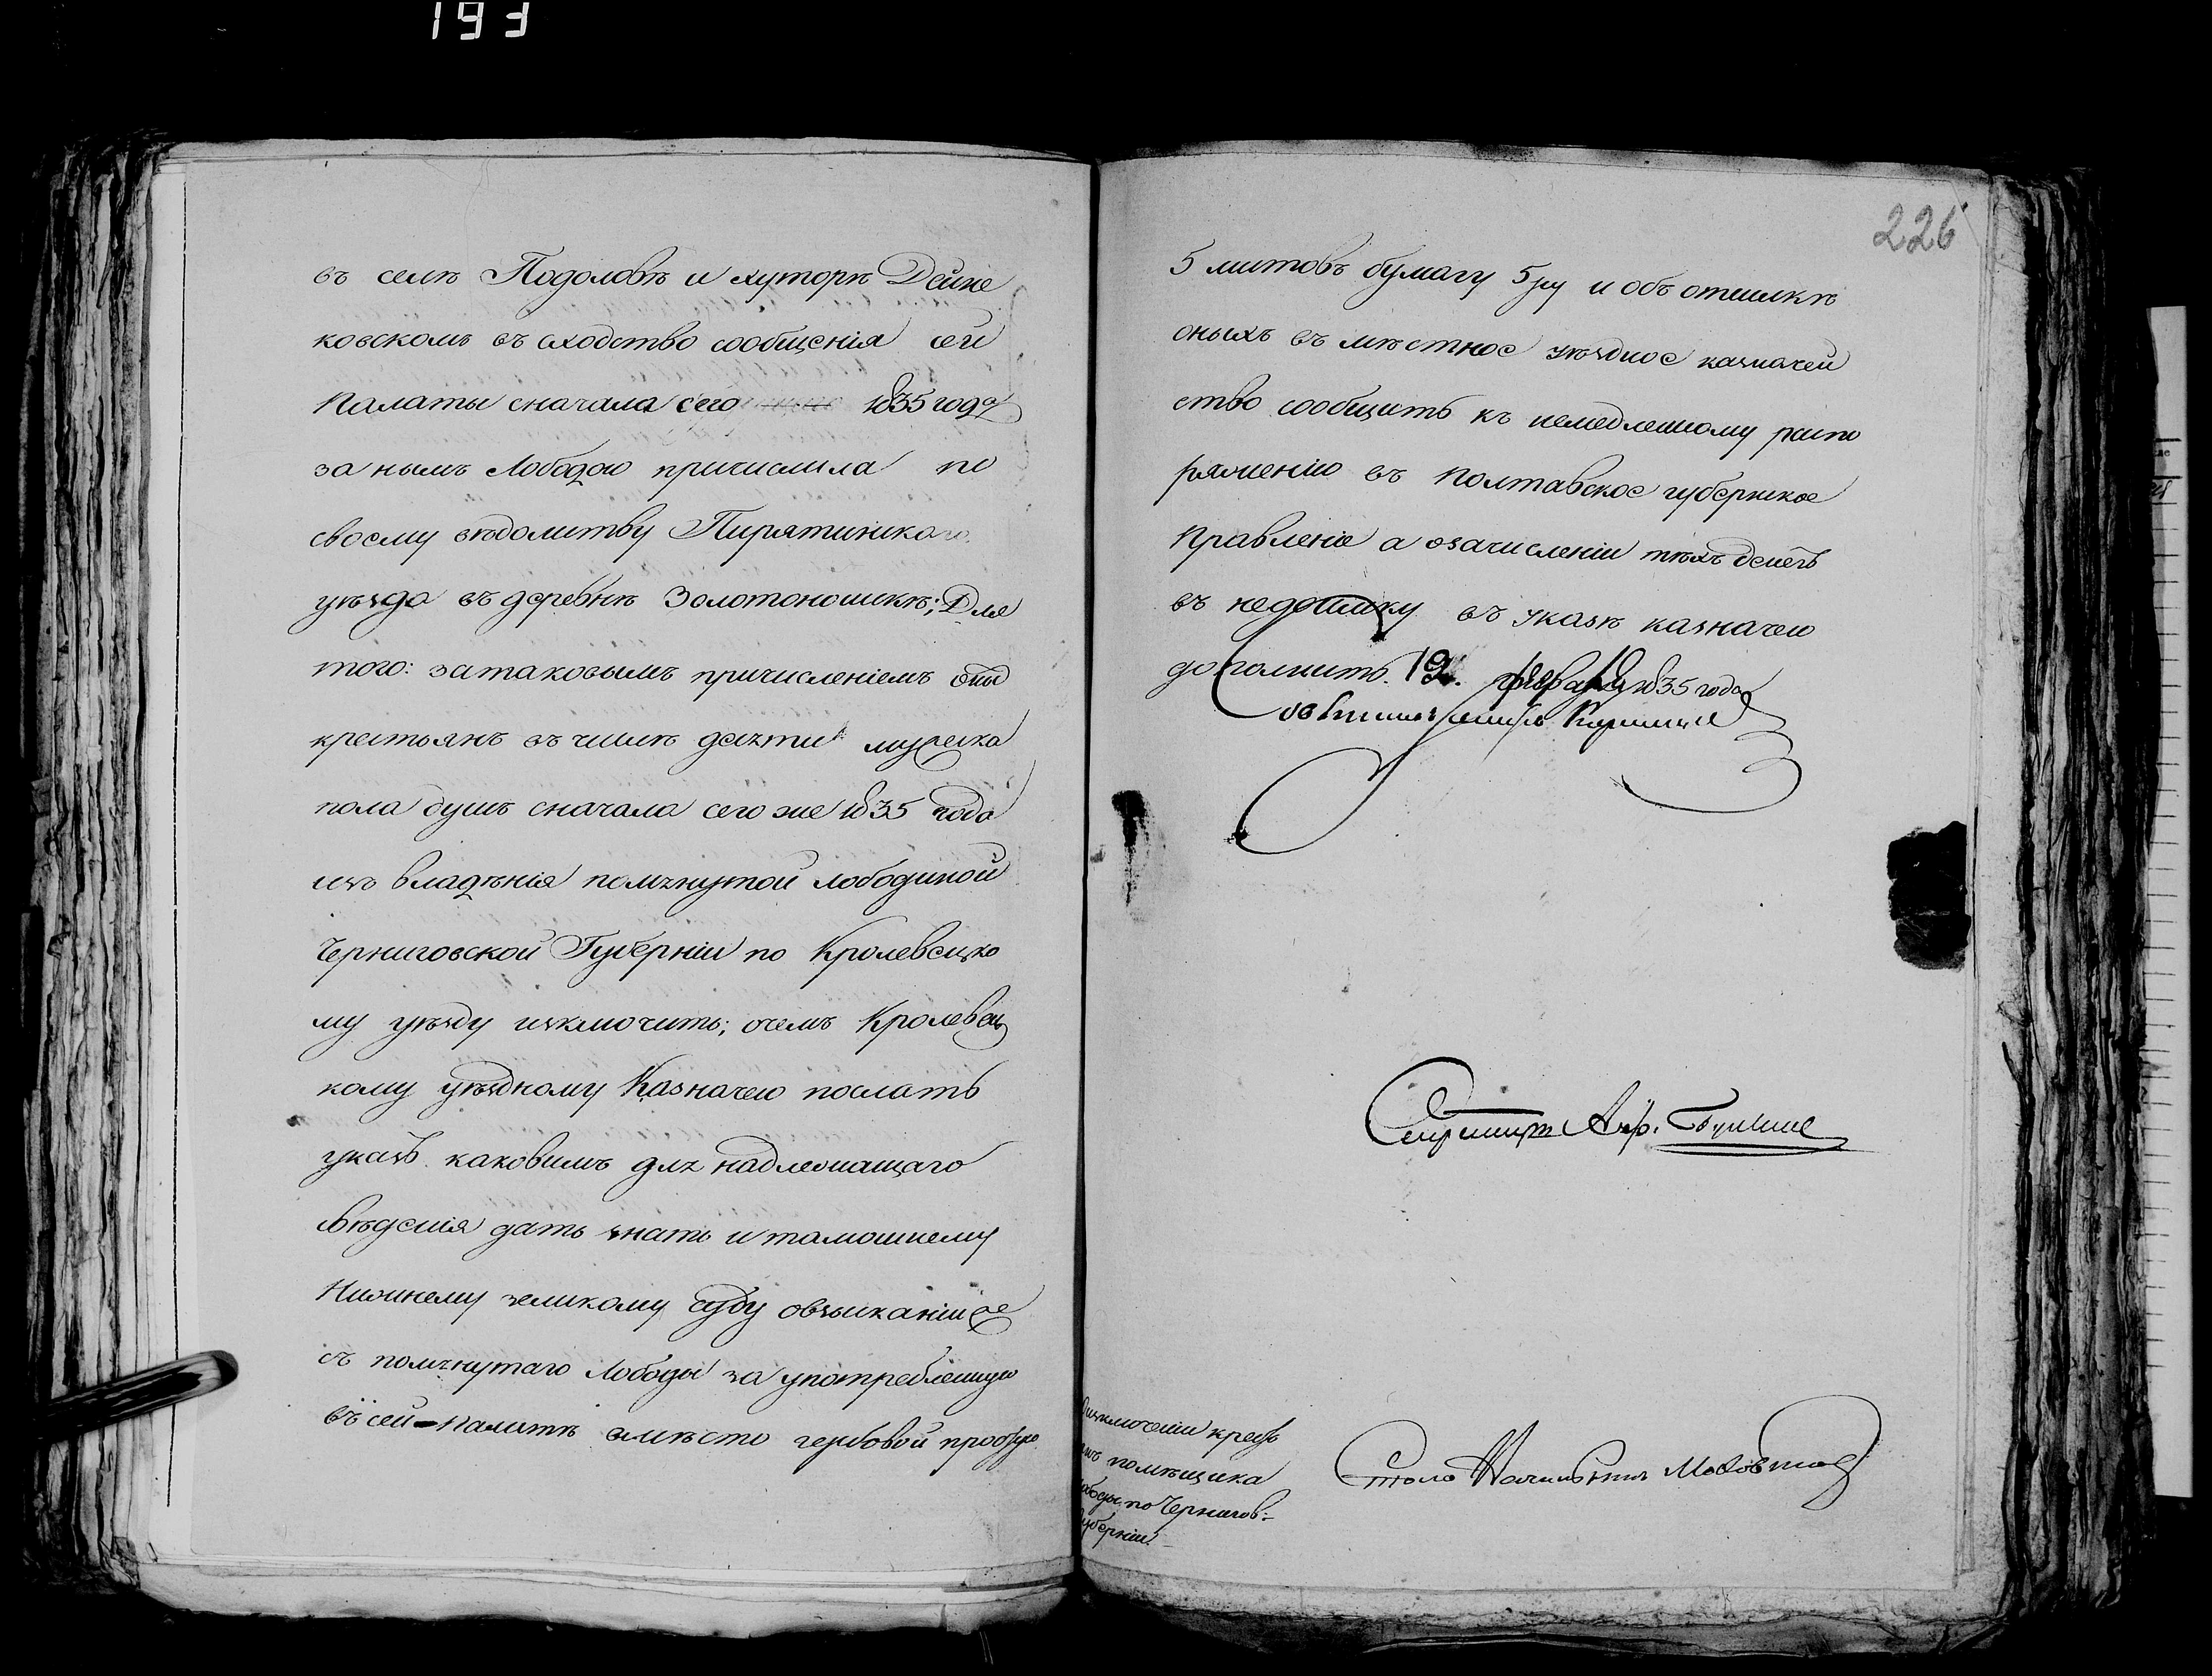 193
226
въ селѣ Подоловѣ и хуторѣ Дейне
ковскомъ въ сходство сообщенія сей
Палаты сначала сего 1835 года
за нымъ Лободою причислила по
своему вѣдомству Пирятинскаго
уѣзда въ деревнѣ Золотоношкѣ; Для
того: за таковымъ причисленіемъ оны
крестьянъ въ числѣ десяти мужеска
пола душъ сначала сего же 1835 года
изъ владѣнія помянутой Лободиной
Черниговской Губерніи по Кролевецко
му уѣзду изключить; очемъ Кролевец
кому уѣздному Казначею послать
указъ каковимъ для надлежащаго
свѣденія дать знать и тамошнему
Нижнему земскому суду овзысканіи же
съ помянутаго Лободы за употребленную
въ сей Палатѣ вмѣсто гербовой простую
5 листовъ бумагу 5 ру и объ отсылкѣ
оныхъ въ мѣстное уѣздное казначей
ство сообщить къ немедленному распо
ряженію въ Полтавское губернское
Правленіе а озачисленіи тѣхъ денегъ
въ недоимку въ указѣ казначею
дополнить. 19. февраля 1835 года
Секретарь
Столо Начальникъ
изключеніи крес
помѣщика
по Чернигов:
Губерніи